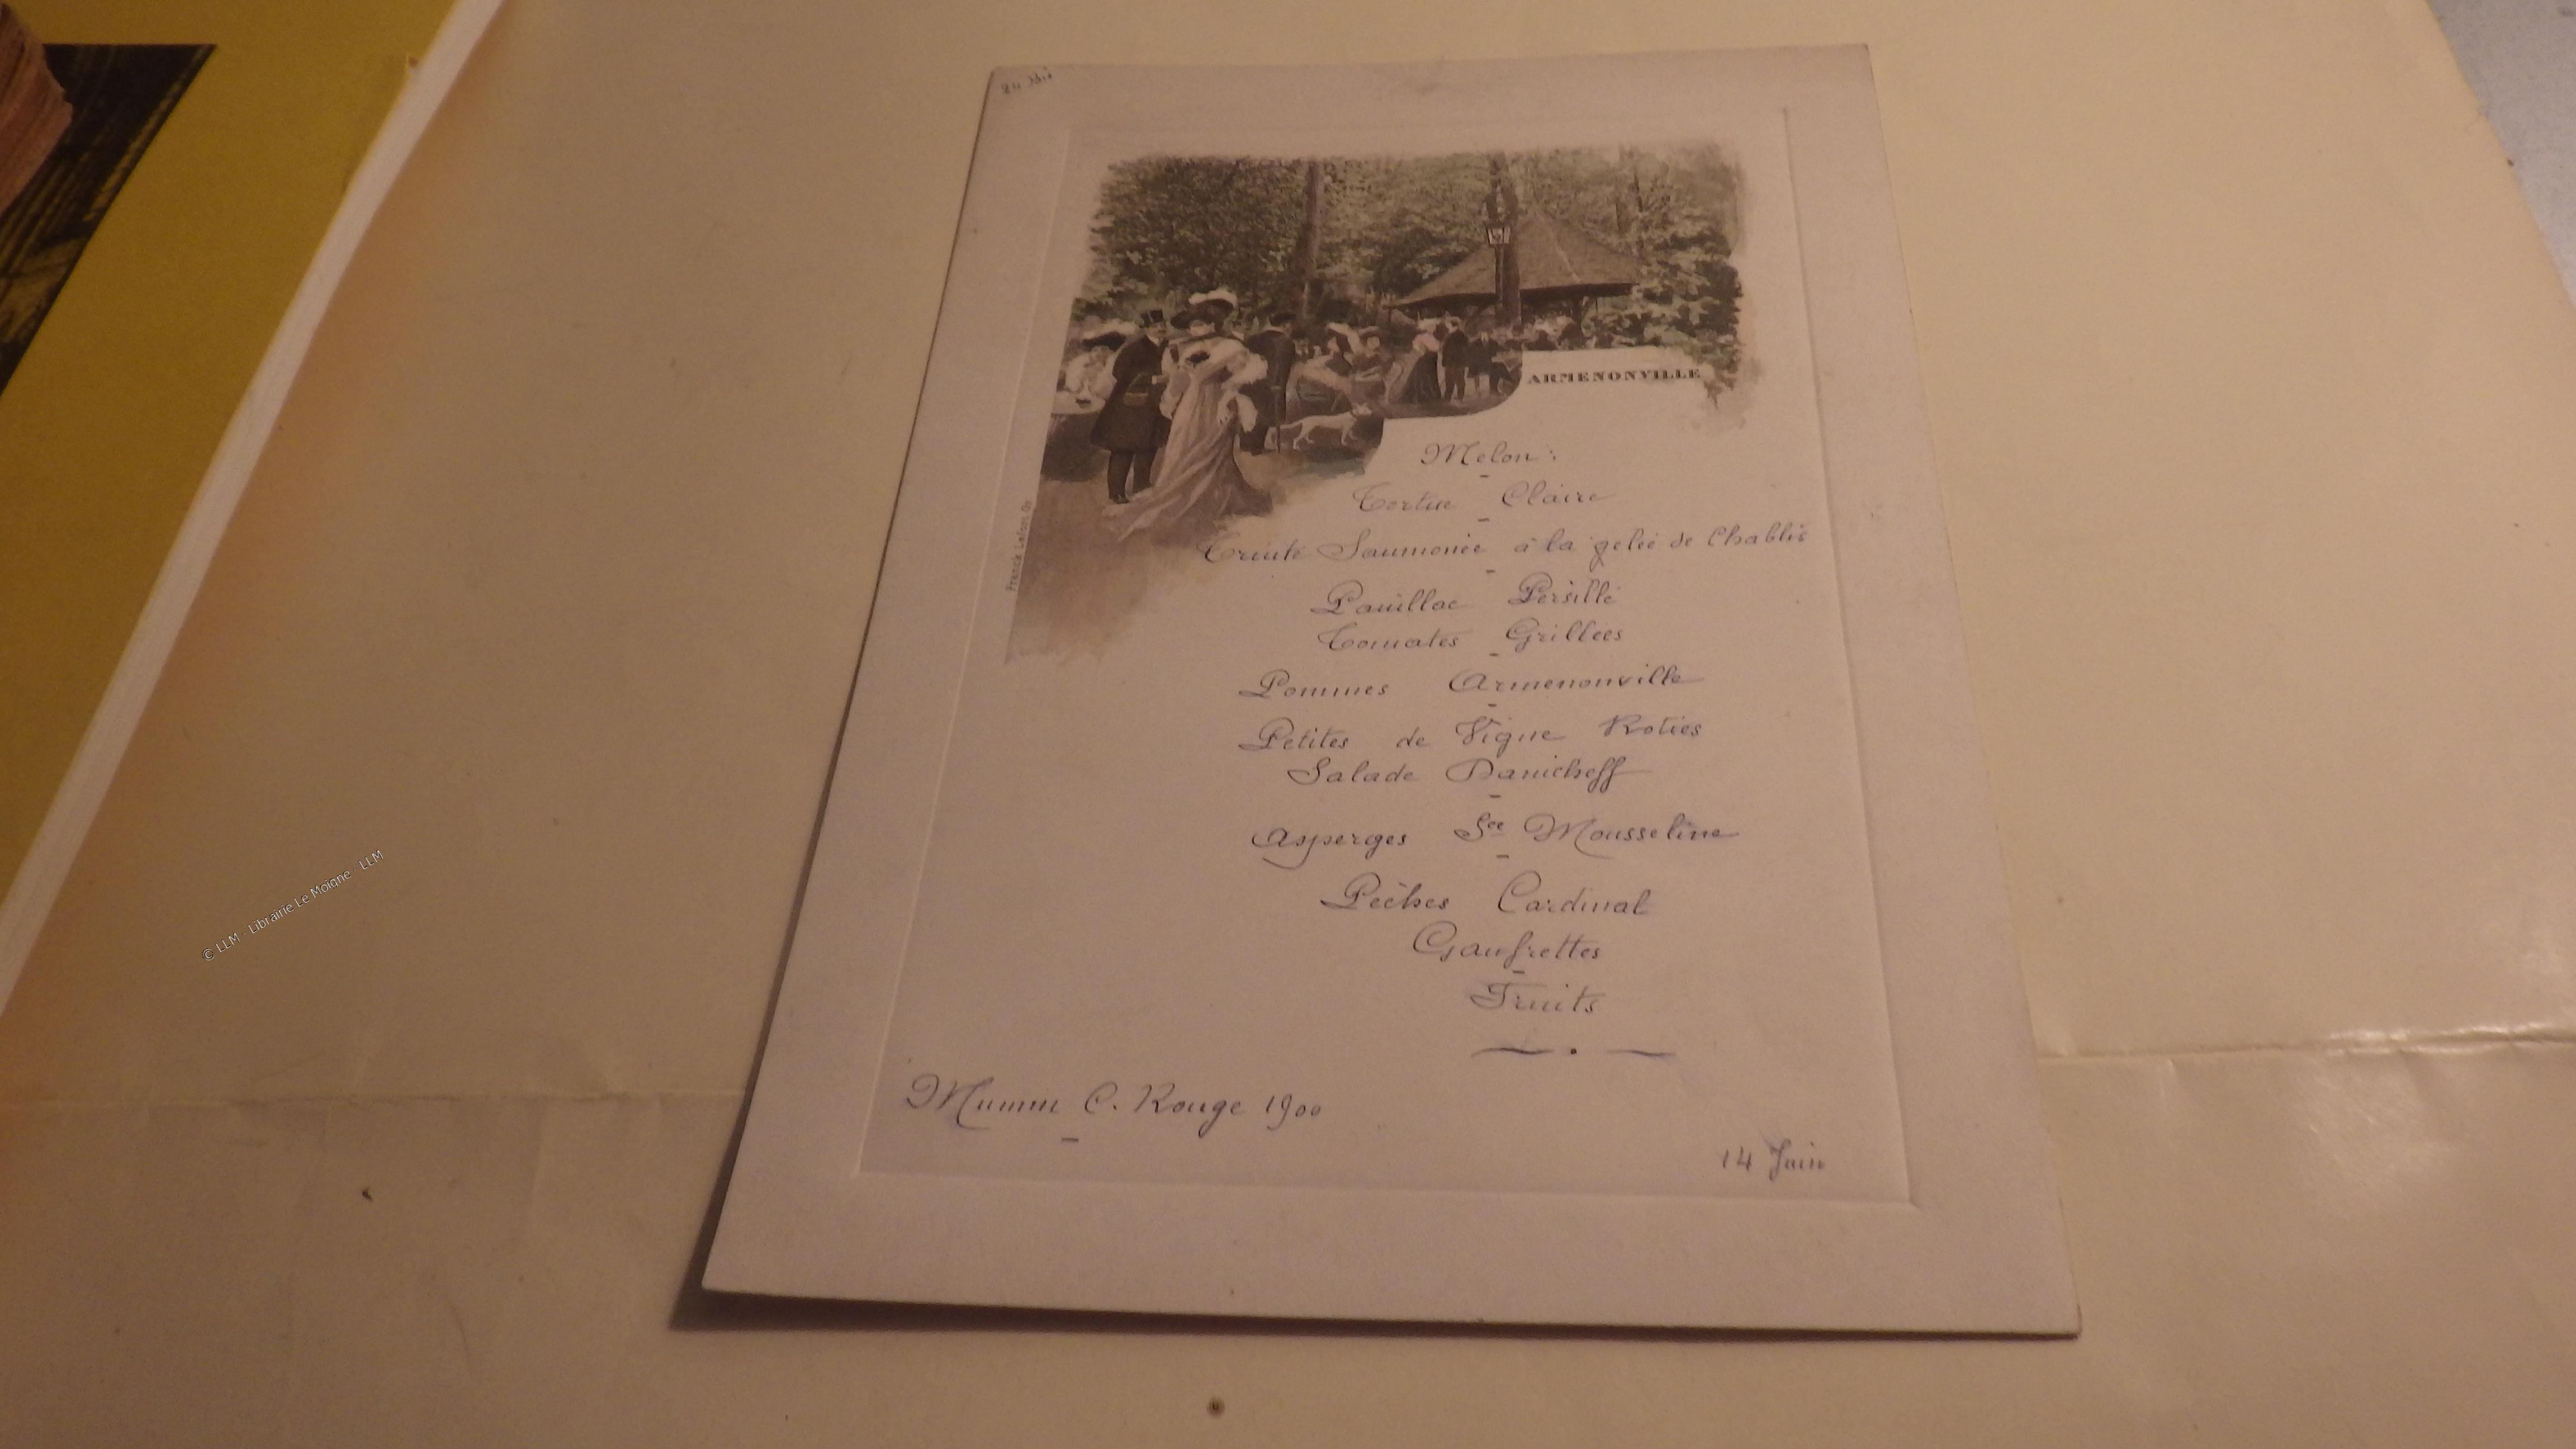 ARMENONVILLE
Melon
Tortue Claire
Truite Saumonée à la gelée de Chablis
Pauillac Persillé
Tomates Grillées
Pommes Armenonville
Petites de Vigne Roties
Salade Danicheff
Asperges Sce Mousseline
Pêches Cardinal
Gaufrettes
Fruits
Mumm C. Rouge 1900
14 Juin
© LLM - Librairie Le Moigne - LLM